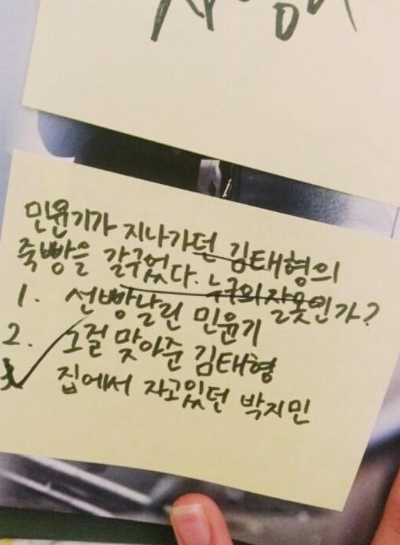 민윤기가 지나가던 김태형의
죽빵을 갈구었다. 누구의 잘못인가?
1. 선빵날린 민윤기
2. 그걸 맞아준 김태형
3. 집에서 자고있던 박지민